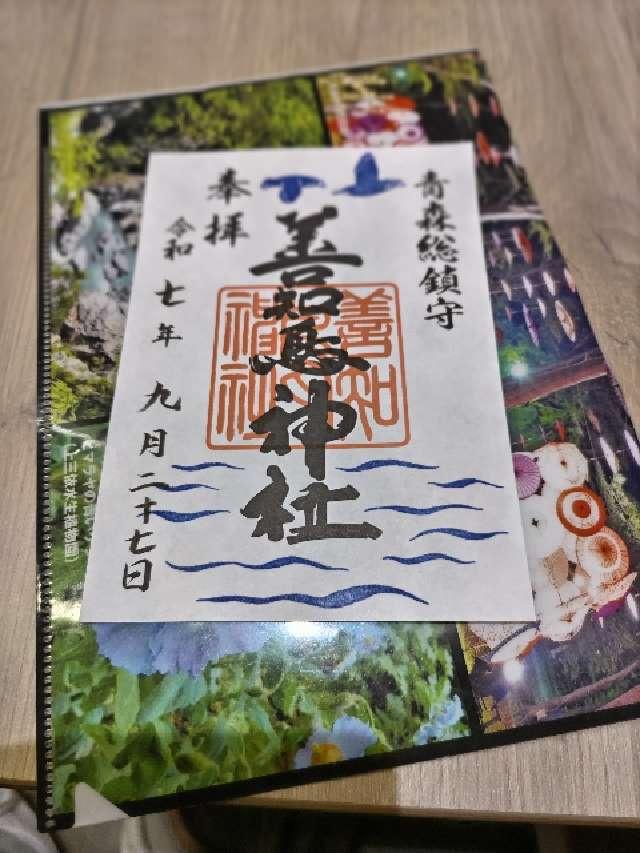 青森総鎮守
奉拝
善知鳥神社
善知鳥神社
令和七年九月二十七日